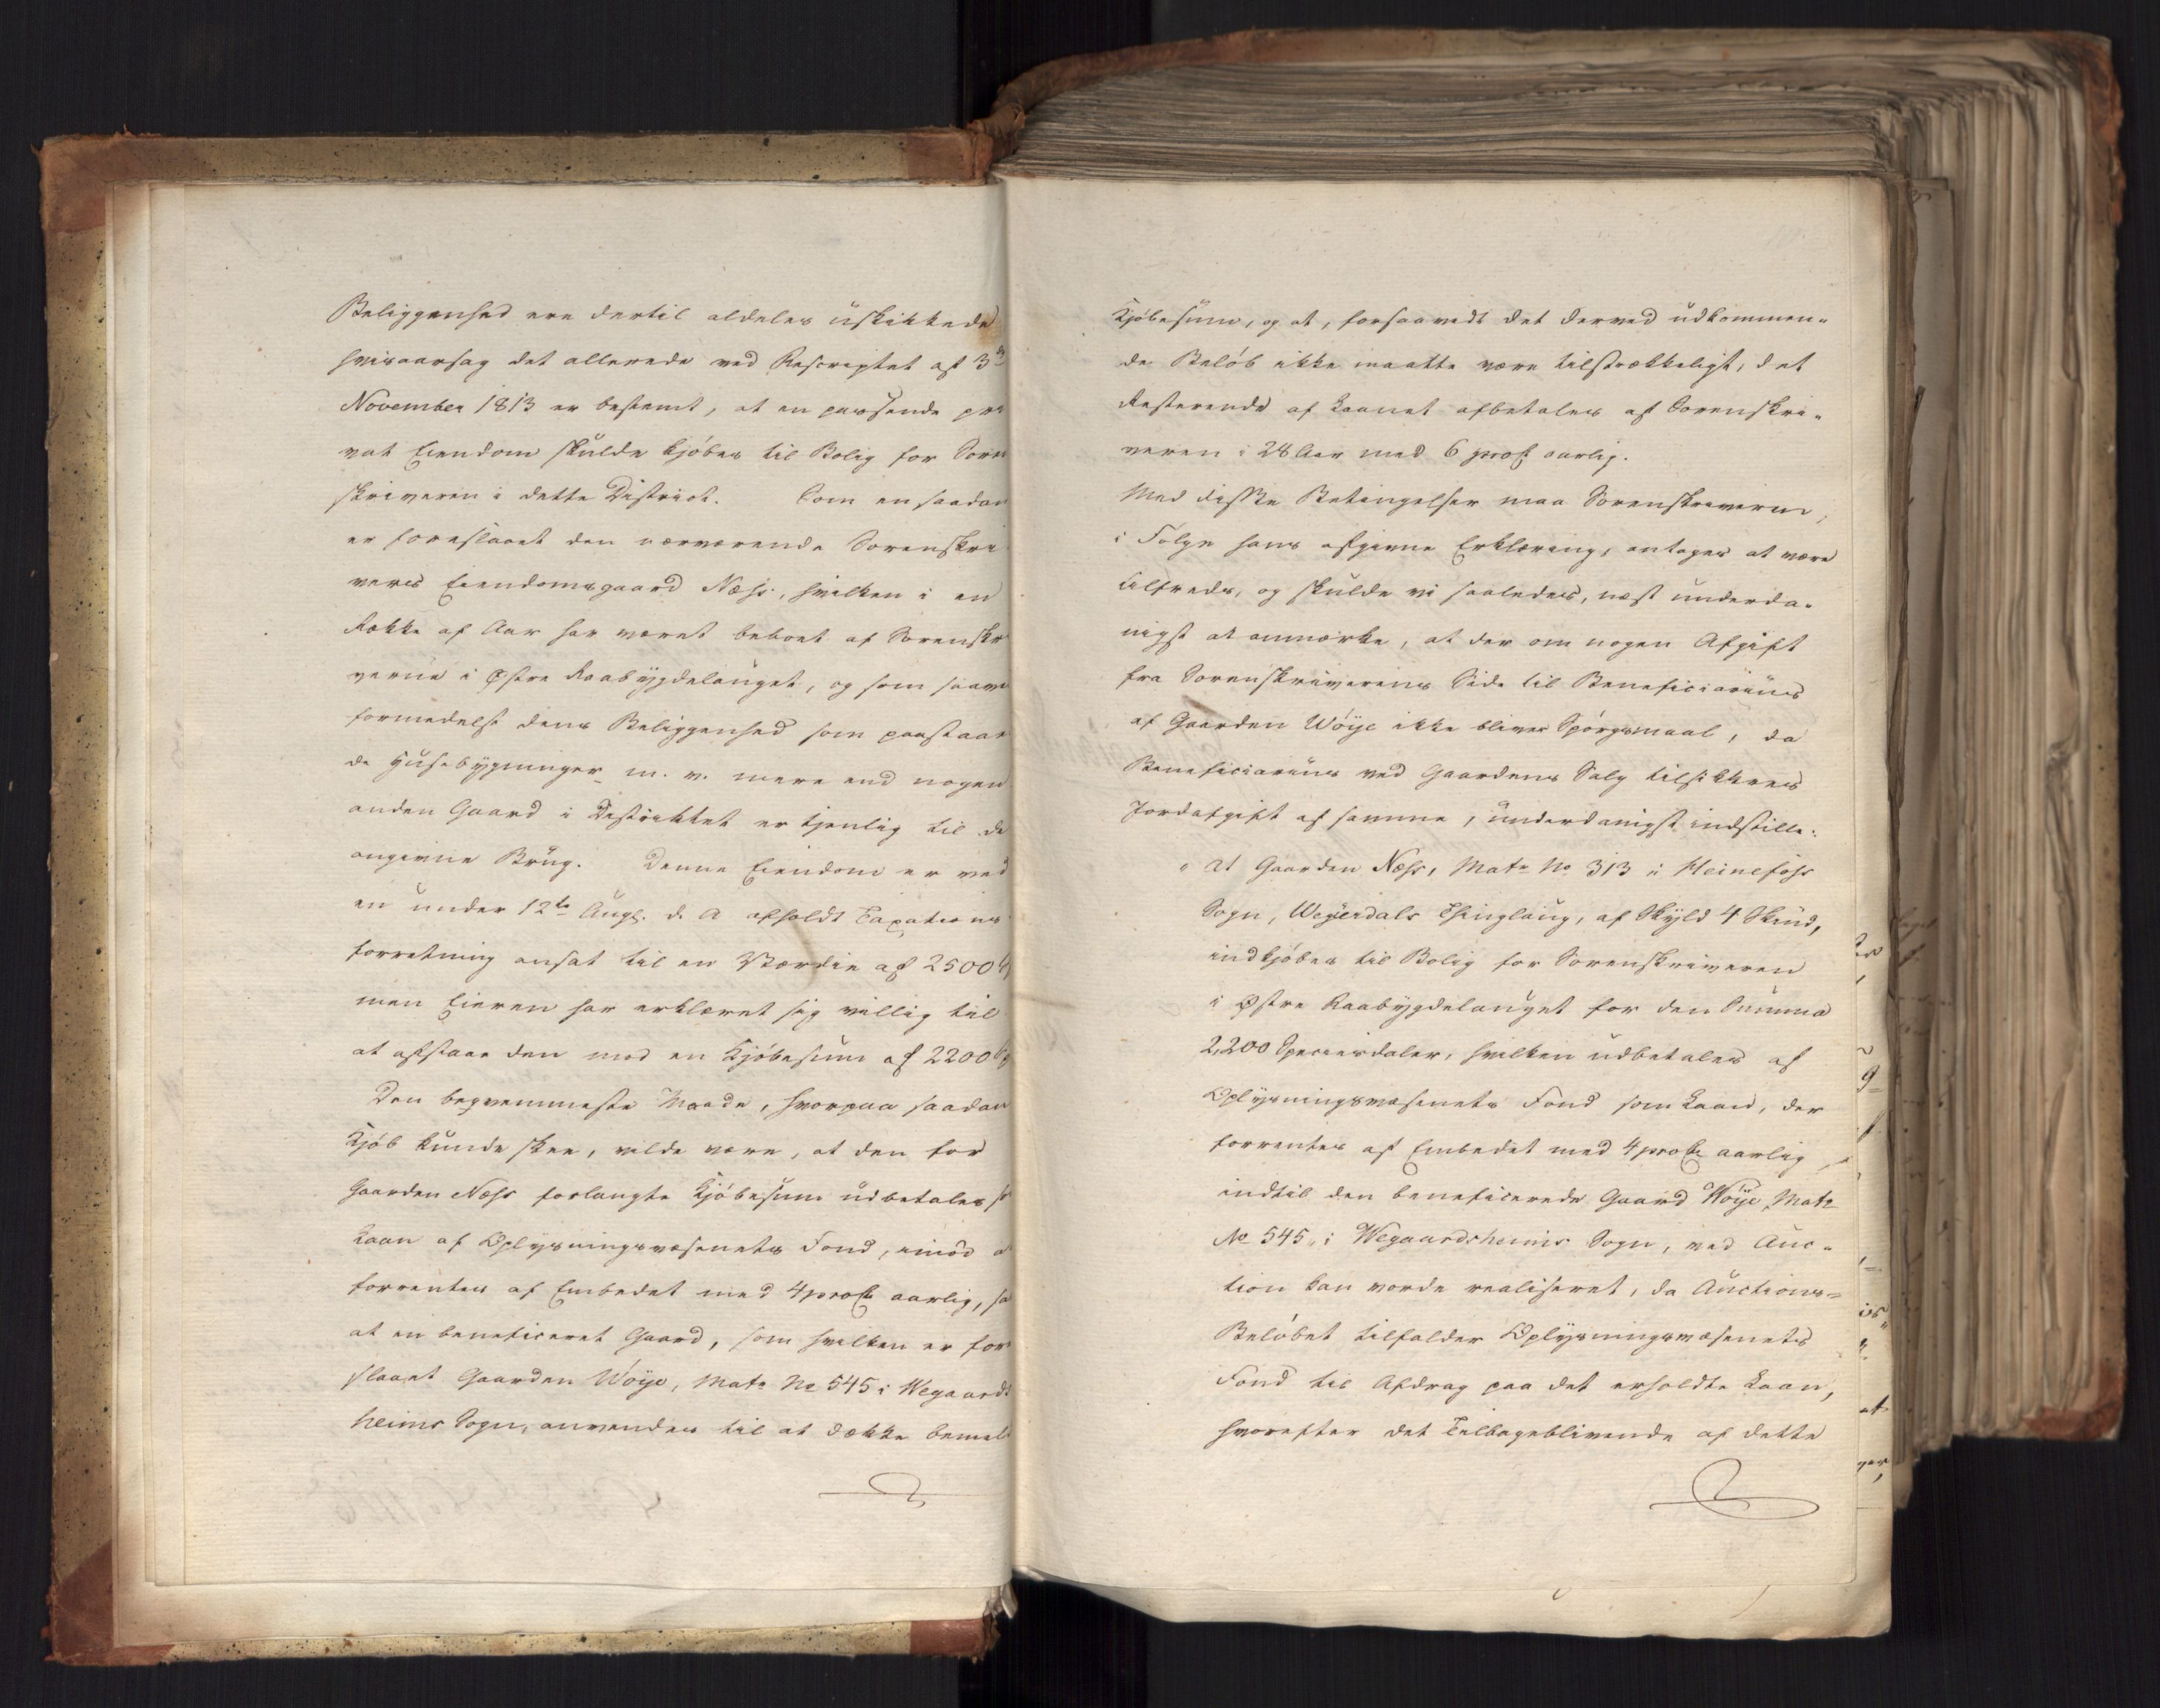 Beliggenhed ere dertil aldeles uskikkede
hvisaarsag det allerede ved Rescriptet af 3de
November 1813 er bestemt, at en passende pri
vat Eiendom skulde kjöbes til Bolig for Soren
skriveren i dette District. Som en saadan
er foreslaaet den nærværende Sorenskri
vers Eiendomsgaard Næss, hvilken i en
Række af Aar har været beboet af Sorenskri
verne i Østre Raabygdelauget, og som saavel
formedelst dens Beliggenhed som paastaaen
de Husebygninger m. v. mere end nogen
anden Gaard i Districktet er tjenlig til de
angivne Brug. Denne Eiendom er ved
en under 12te Augt. d. A afholdt Taxations
forretning ansat til en Værdie af 2500
men Eieren har erklæret sig villig til
at afstaae den mod en Kjöbesum af 2200
Den beqvemmeste Maade, hvorpaa saadan
Kjöb kunde skee, vilde være, at den for
Gaarden Næss forlangte Kjöbesum udbetales so
Laan af Oplysningsvæsenets Fond, imod a
forrentes af Embedet med 4 proCt aarlig, sa
at en beneficeret Gaard, som hvilken er for
slaaet Gaarden Wöije, Matr No 545 i Wegaards
heims Sogn, anvendes til at dække bemeld
Kjöbesum, og at, forsaavidt det derved udkommen-
de Belöb ikke maatte være tilstrækkeligt, det
Resterende af Laanet afbetales af Sorenskri-
veren i 28 Aar med 6 proCt aarlig.
Med disse Betingelser maa Sorenskriveren,
i Fölge hans afgivne Erklæring, antages at være
tilfreds, og skulde vi saaledes, næst underda-
nigst at anmærke, at der om nogen Afgift
fra Sorenskriverens Side til Beneficiarius
af Gaarden Wöije ikke bliver Spörgsmaal, da
Beneficiarius ved Gaardens Salg tilsikkres
Jordafgift af samme, underdanigst indstille:
" at Gaarden Næss, Matr No 313 i Heineföhs
Sogn, Wegerdals Thinglaug, af Skyld 4 Skind,
indkjöbes til Bolig for Sorenskriveren
i Østre Raabygdelauget for den Summa
2,200 Speciesdaler, hvilken udbetales af
Oplysningsvæsenets Fond som Laan, der
forrentes af Embedet med 4 proCt aarlig
indtil den beneficerede Gaard Wöije Matr
No 545, i Wegaardsheims Sogn, ved Auc-
tion kan vorde realiseret, da Auctions-
Belöbet tilfalder Oplysningsvæsenets
Fond til Afdrag paa det erholdte Laan,
hvorefter det Tilbageblivende af dette